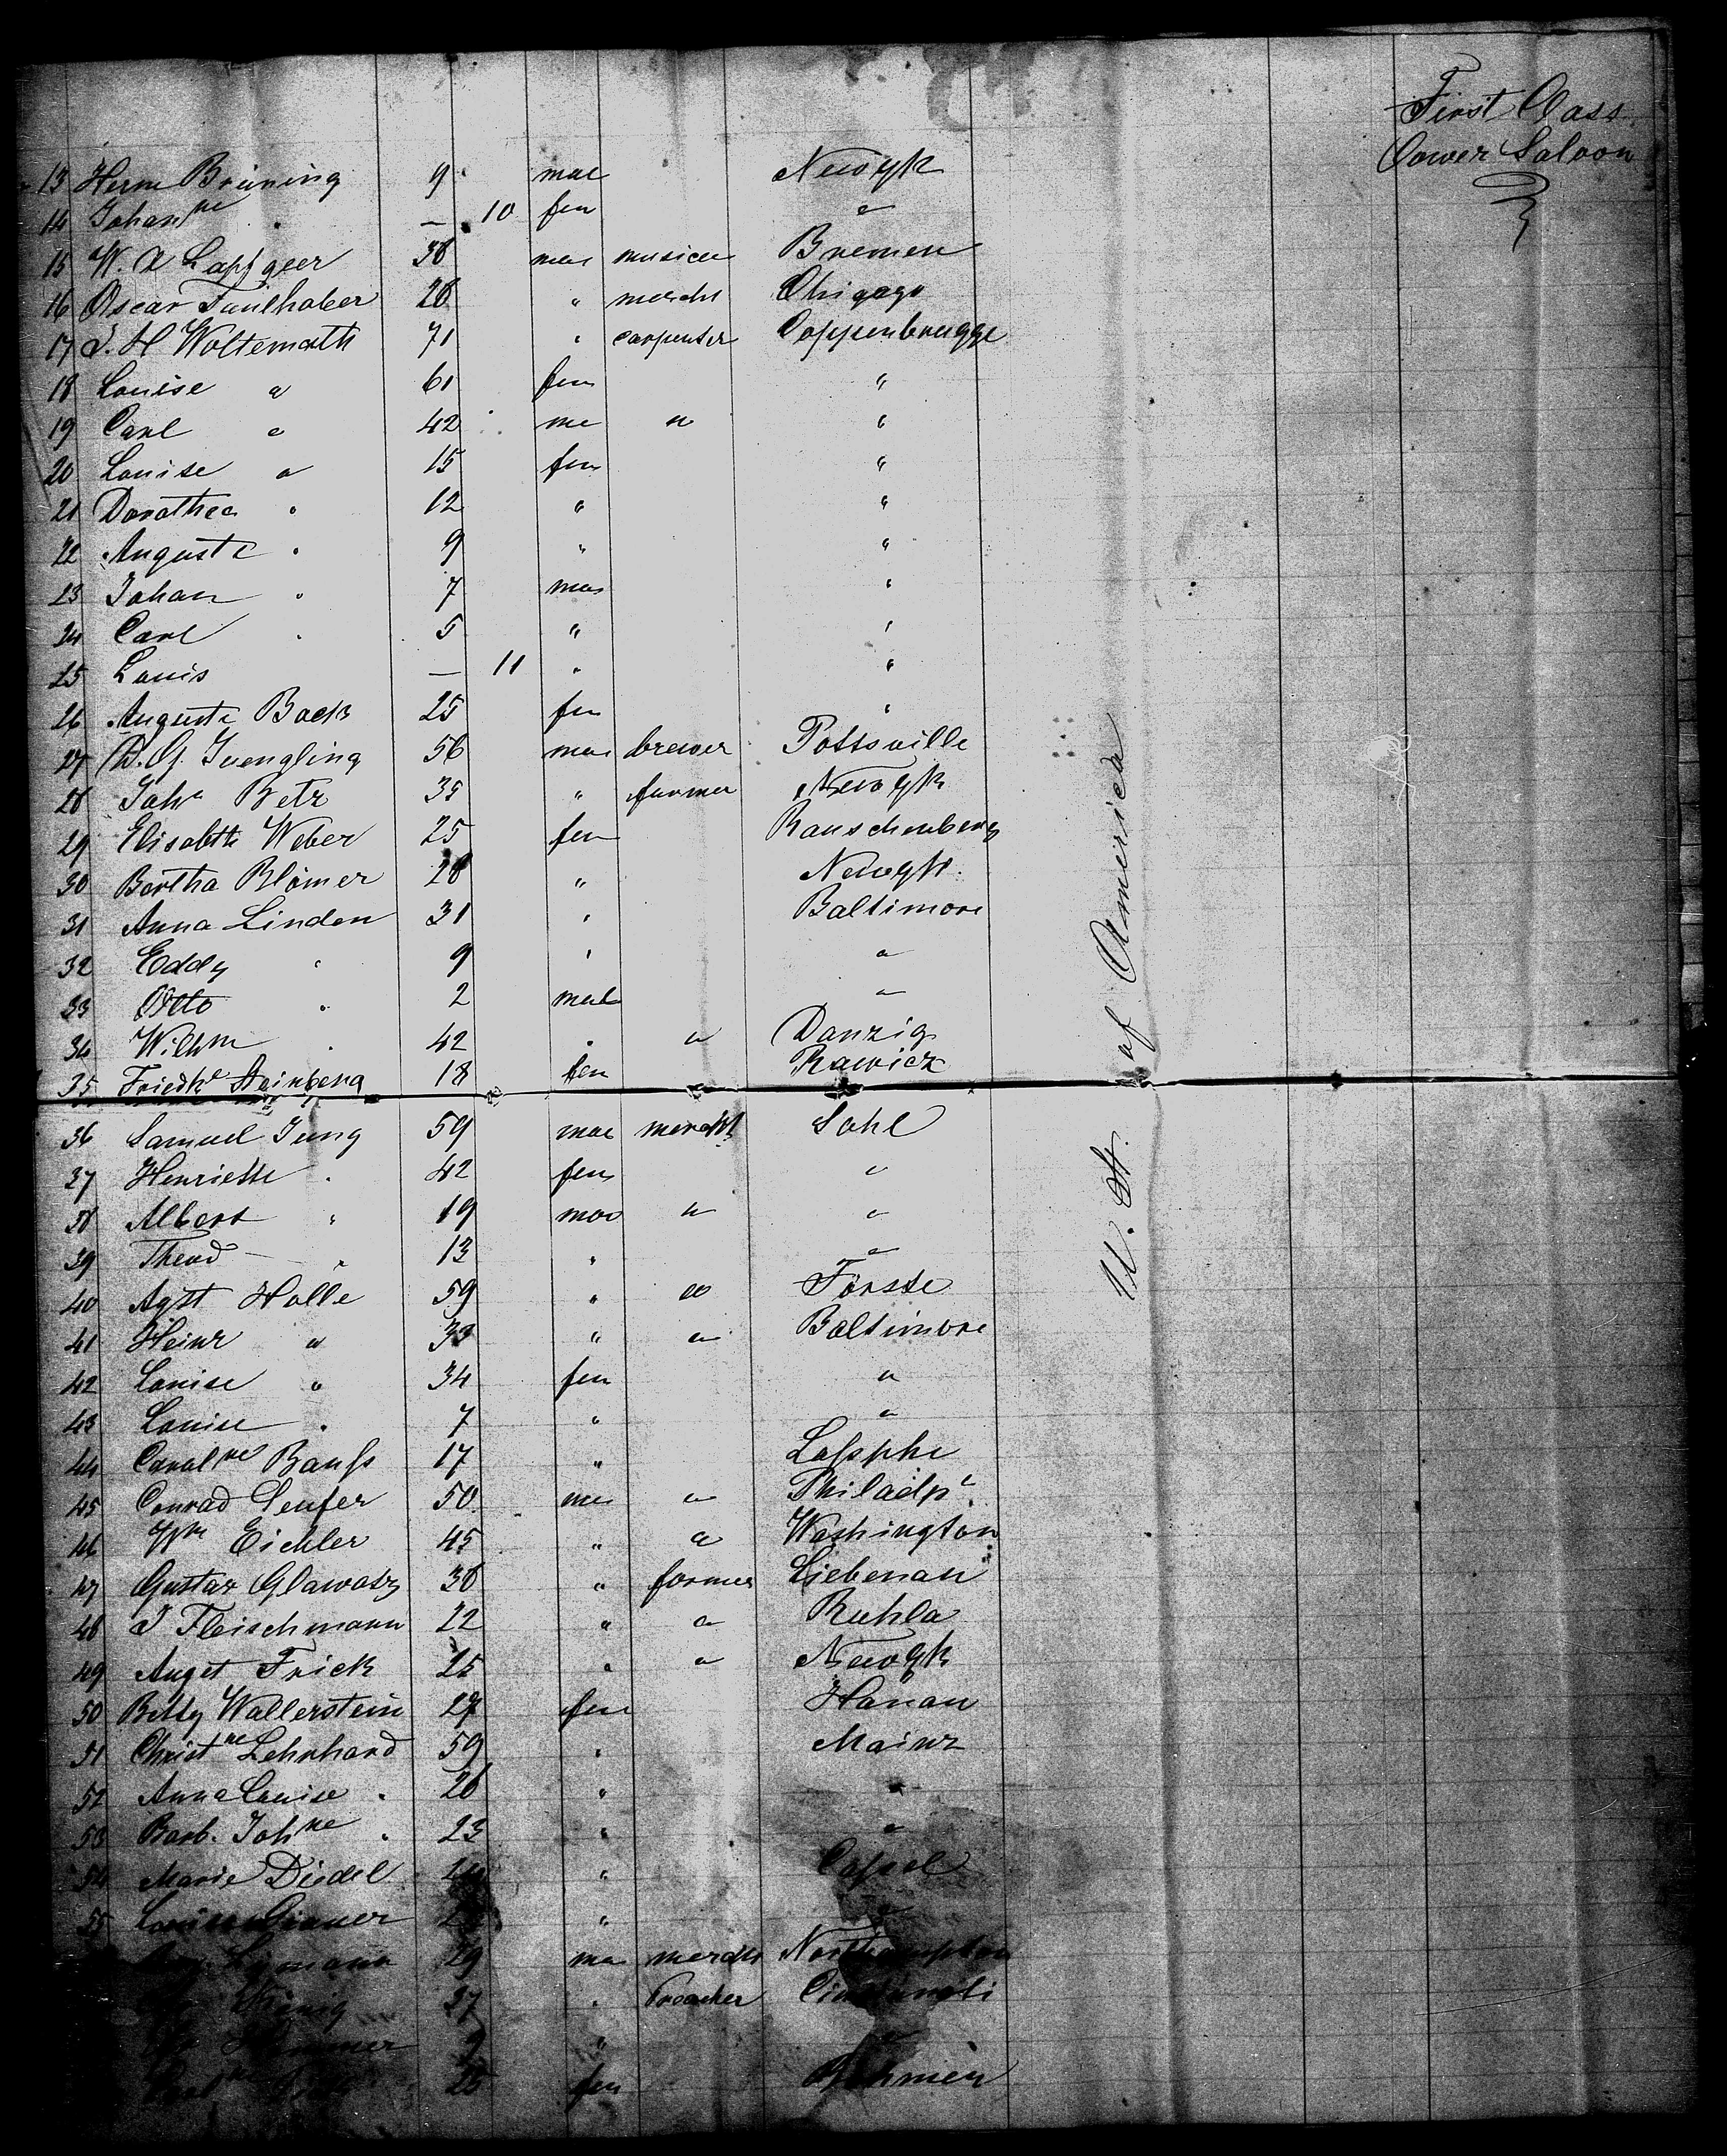 First Class
Lower Saloon
13 Herm Brüning 9 mal Newyk
14 Johanne " — 10 fem "
15 W. mal musicia Bremen
16 Oscar Faulhaber 28 " mercht Chigago
17 J. H Woltemath 71 " carpenter Coppenbrugge
18 Louise " 61 fem "
19 Carl " 42 ma " "
20 Louise " 15 fem "
21 Dorothea " 12 " "
22 Auguste " 9 " "
23 Johan " 7 mal "
24 Carl " 5 " "
25 Louis — 11 " "
26 Auguste Bock 25 fem "
27 D. G. Juengling 56 mal brewer Pottsville
28 John Betz 35 " farmer Newyk
29 Elisabth Weber 25 fem Rauschenberg
30 Bertha Blömer 28 " Newyk.
31 Anna Linden 31 " Baltimore
32 Eddy " 9 " "
33 Otto " 2 mal "
34 Wilhm " 42 " " Danzig
35 Friedke Steinberg 18 fem Rawicz
36 Samuel Jung 59 mal mercht Sohl
37 Henriette " 42 fem "
38 Albert " 19 mal " "
39 Theod " 13 " "
40 Agst Holle 59 " " Förste
41 Heinr " 33 " " Baltimore
42 Louise " 34 fem "
43 Louise " 7 " "
44 Carolne Banss 17 " Lassphe
45 Conrad 50 ma " Philadpa
46 Wm Eichler 45 " " Washington
47 Gustav 38 " farmer Liebenau
48 J Fleischmann 22 " " Ruhla
49 Augst Frick 25 " " Newyk
50 Betty Wallerstein 27 fem Hanau
51 Christne Lehnhard 59 " Mainz
52 Anna Louise " 26 " "
53 Barb. Johne " 23 " "
54 Marie Diedel " Cassel
55 Louise "
29 ma mercht Northampton
37 " Preacher Cincinnati
9 "
25 fem Böhmen
U. St. of America